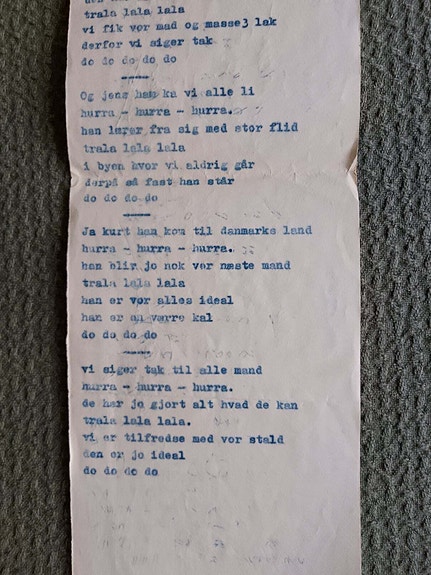 trala lala lala
vi fik vor mad og masse3 lak
derfor vi siger tak
do do do do do
-----
Og jens han ka vi alle li
hurra - hurra - hurra.
han lærer fra sig med stor flid
trala lala lala
i byen hvor vi aldrig går
derpå så fast han står
do do do do
-----
Ja kurt han kom til danmarks land
hurra - hurra - hurra.
han bliv jo nok vor næste mand
trala lala lala
han er vor alles ideal
han er en værre kal
do do do do
-----
vi siger tak til alle mand
hurra - hurra - hurra.
de har jo gjort alt hvad de kan
trala lala lala.
vi er tilfredse med vor stald
den er jo ideal
do do do do